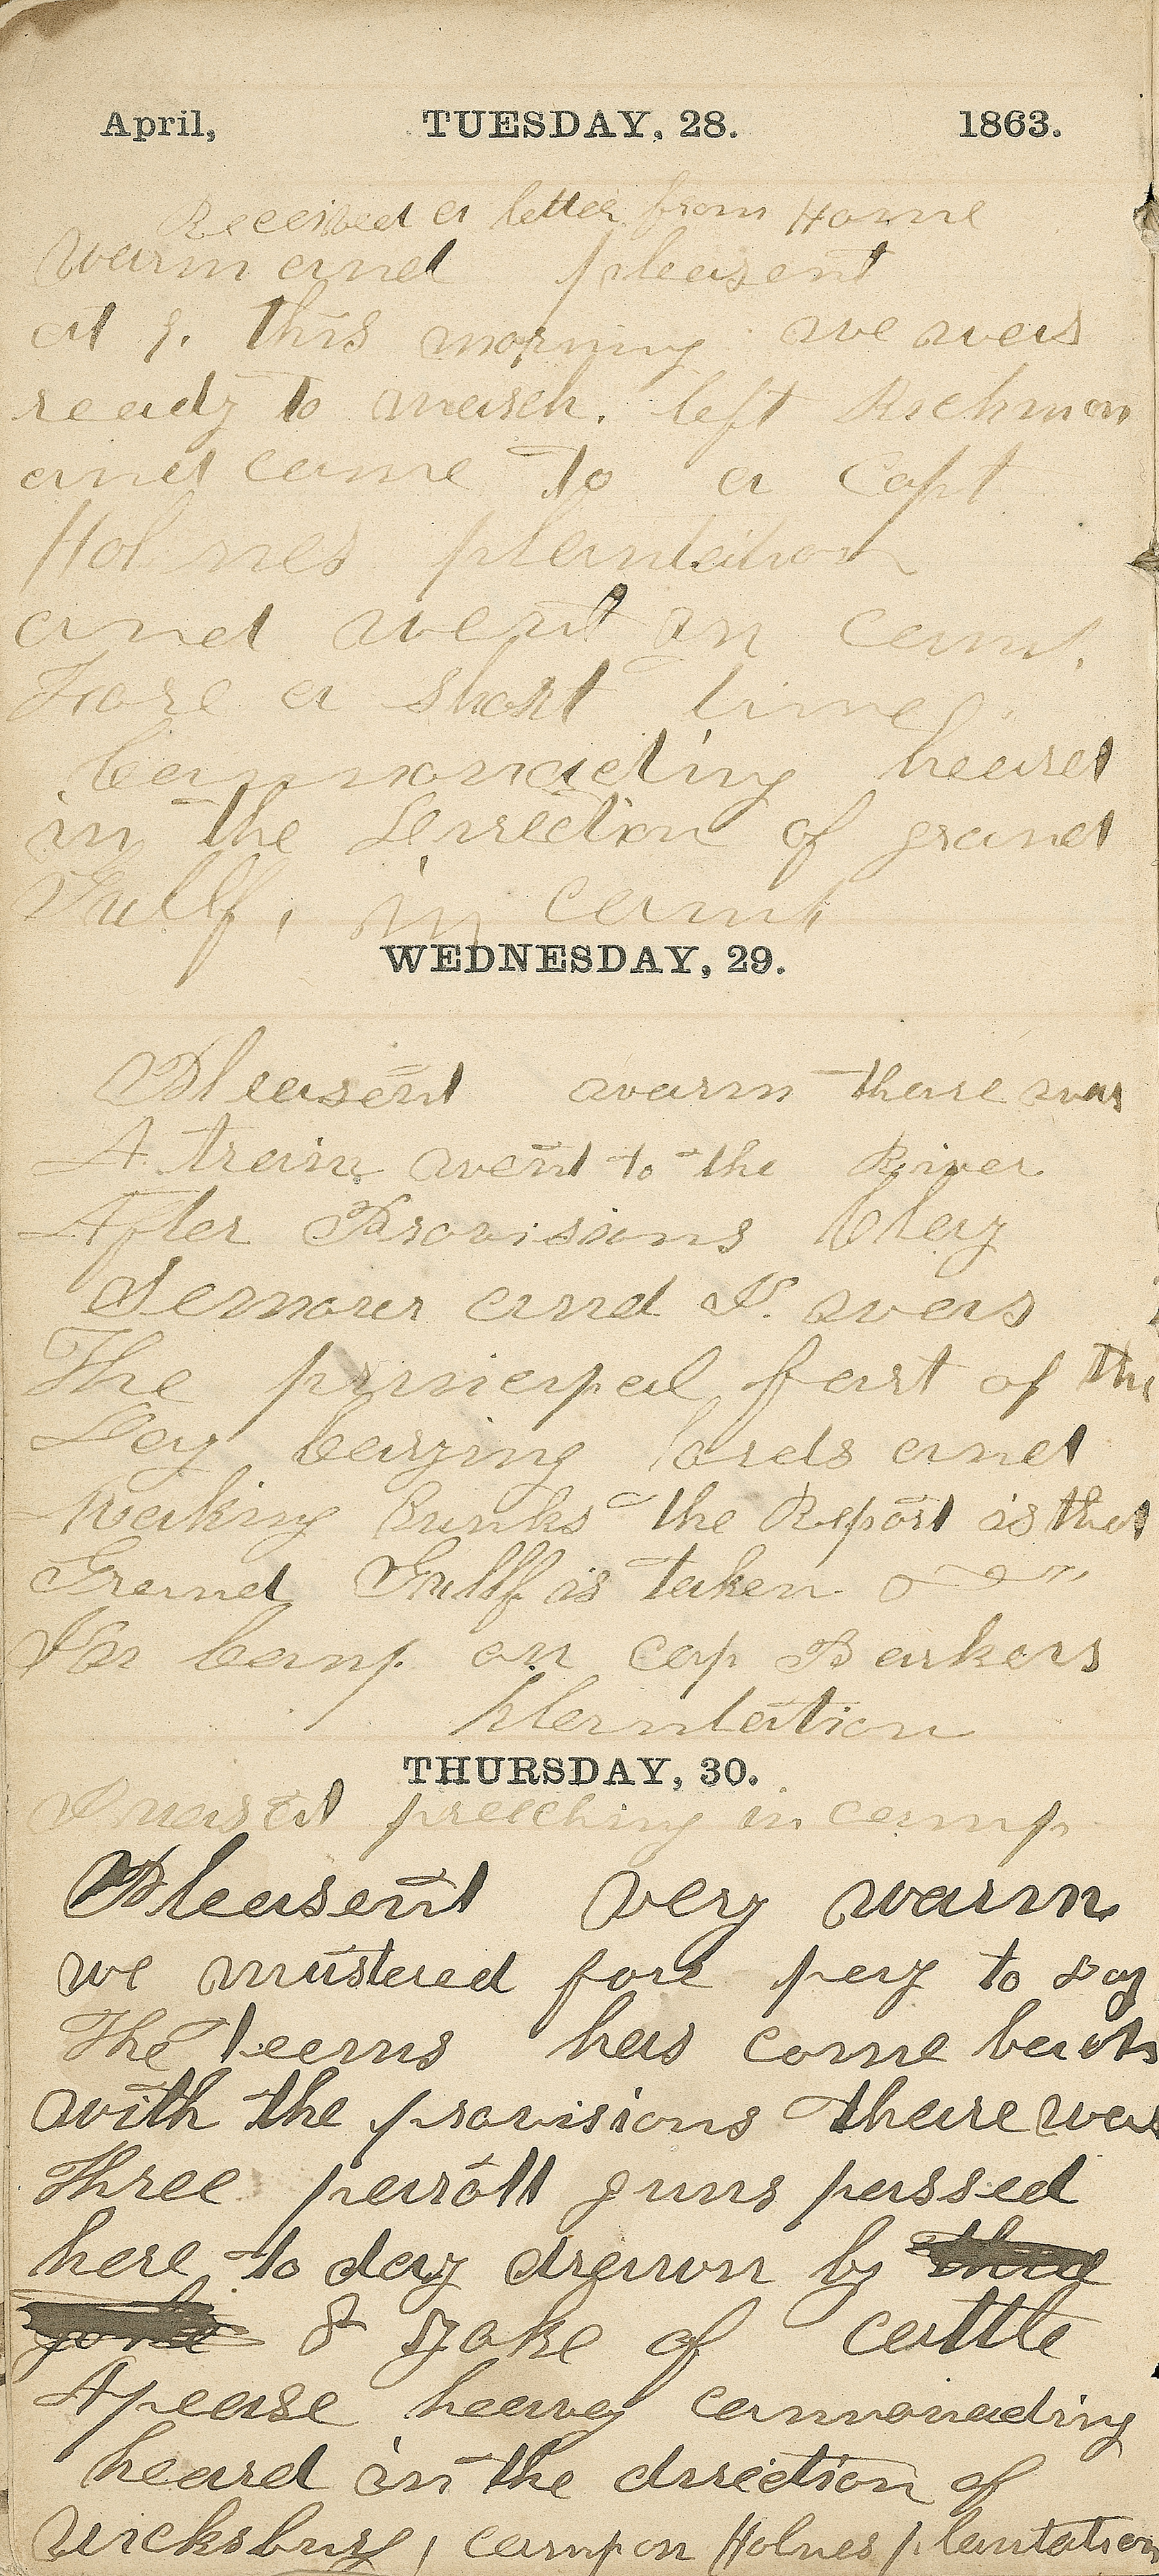 April, TUESDAY, 28. 1863.
Received a letter from Home
warm and pleasent
at 9. this morning we was
ready to march. left Richmon
and came to a Capt
Holmes plantation
and went in camp.
Fore a short time.
Cannonading heard
in the derection of grand
Gullf, in camp
WEDNESDAY, 29.
Pleasent warm thare was
A train went to the River
After Provisions Clay
Semour and I. was
The principal part of the
Day carying bords and
making Bunks the Report is that
Grand Gullf is taken
In camp on cap Barkers
Plantation
THURSDAY, 30.
preeching in camp
Pleasent very warm
we mustered fore pay to day
The teems has come back
with the provisions thare was
Three parott guns passed
here to day drawn by three
yoke 8 yoke of cattle
Apease heavey cannonading
heard in the direction of
vicksburg, camp on Holmes plantation